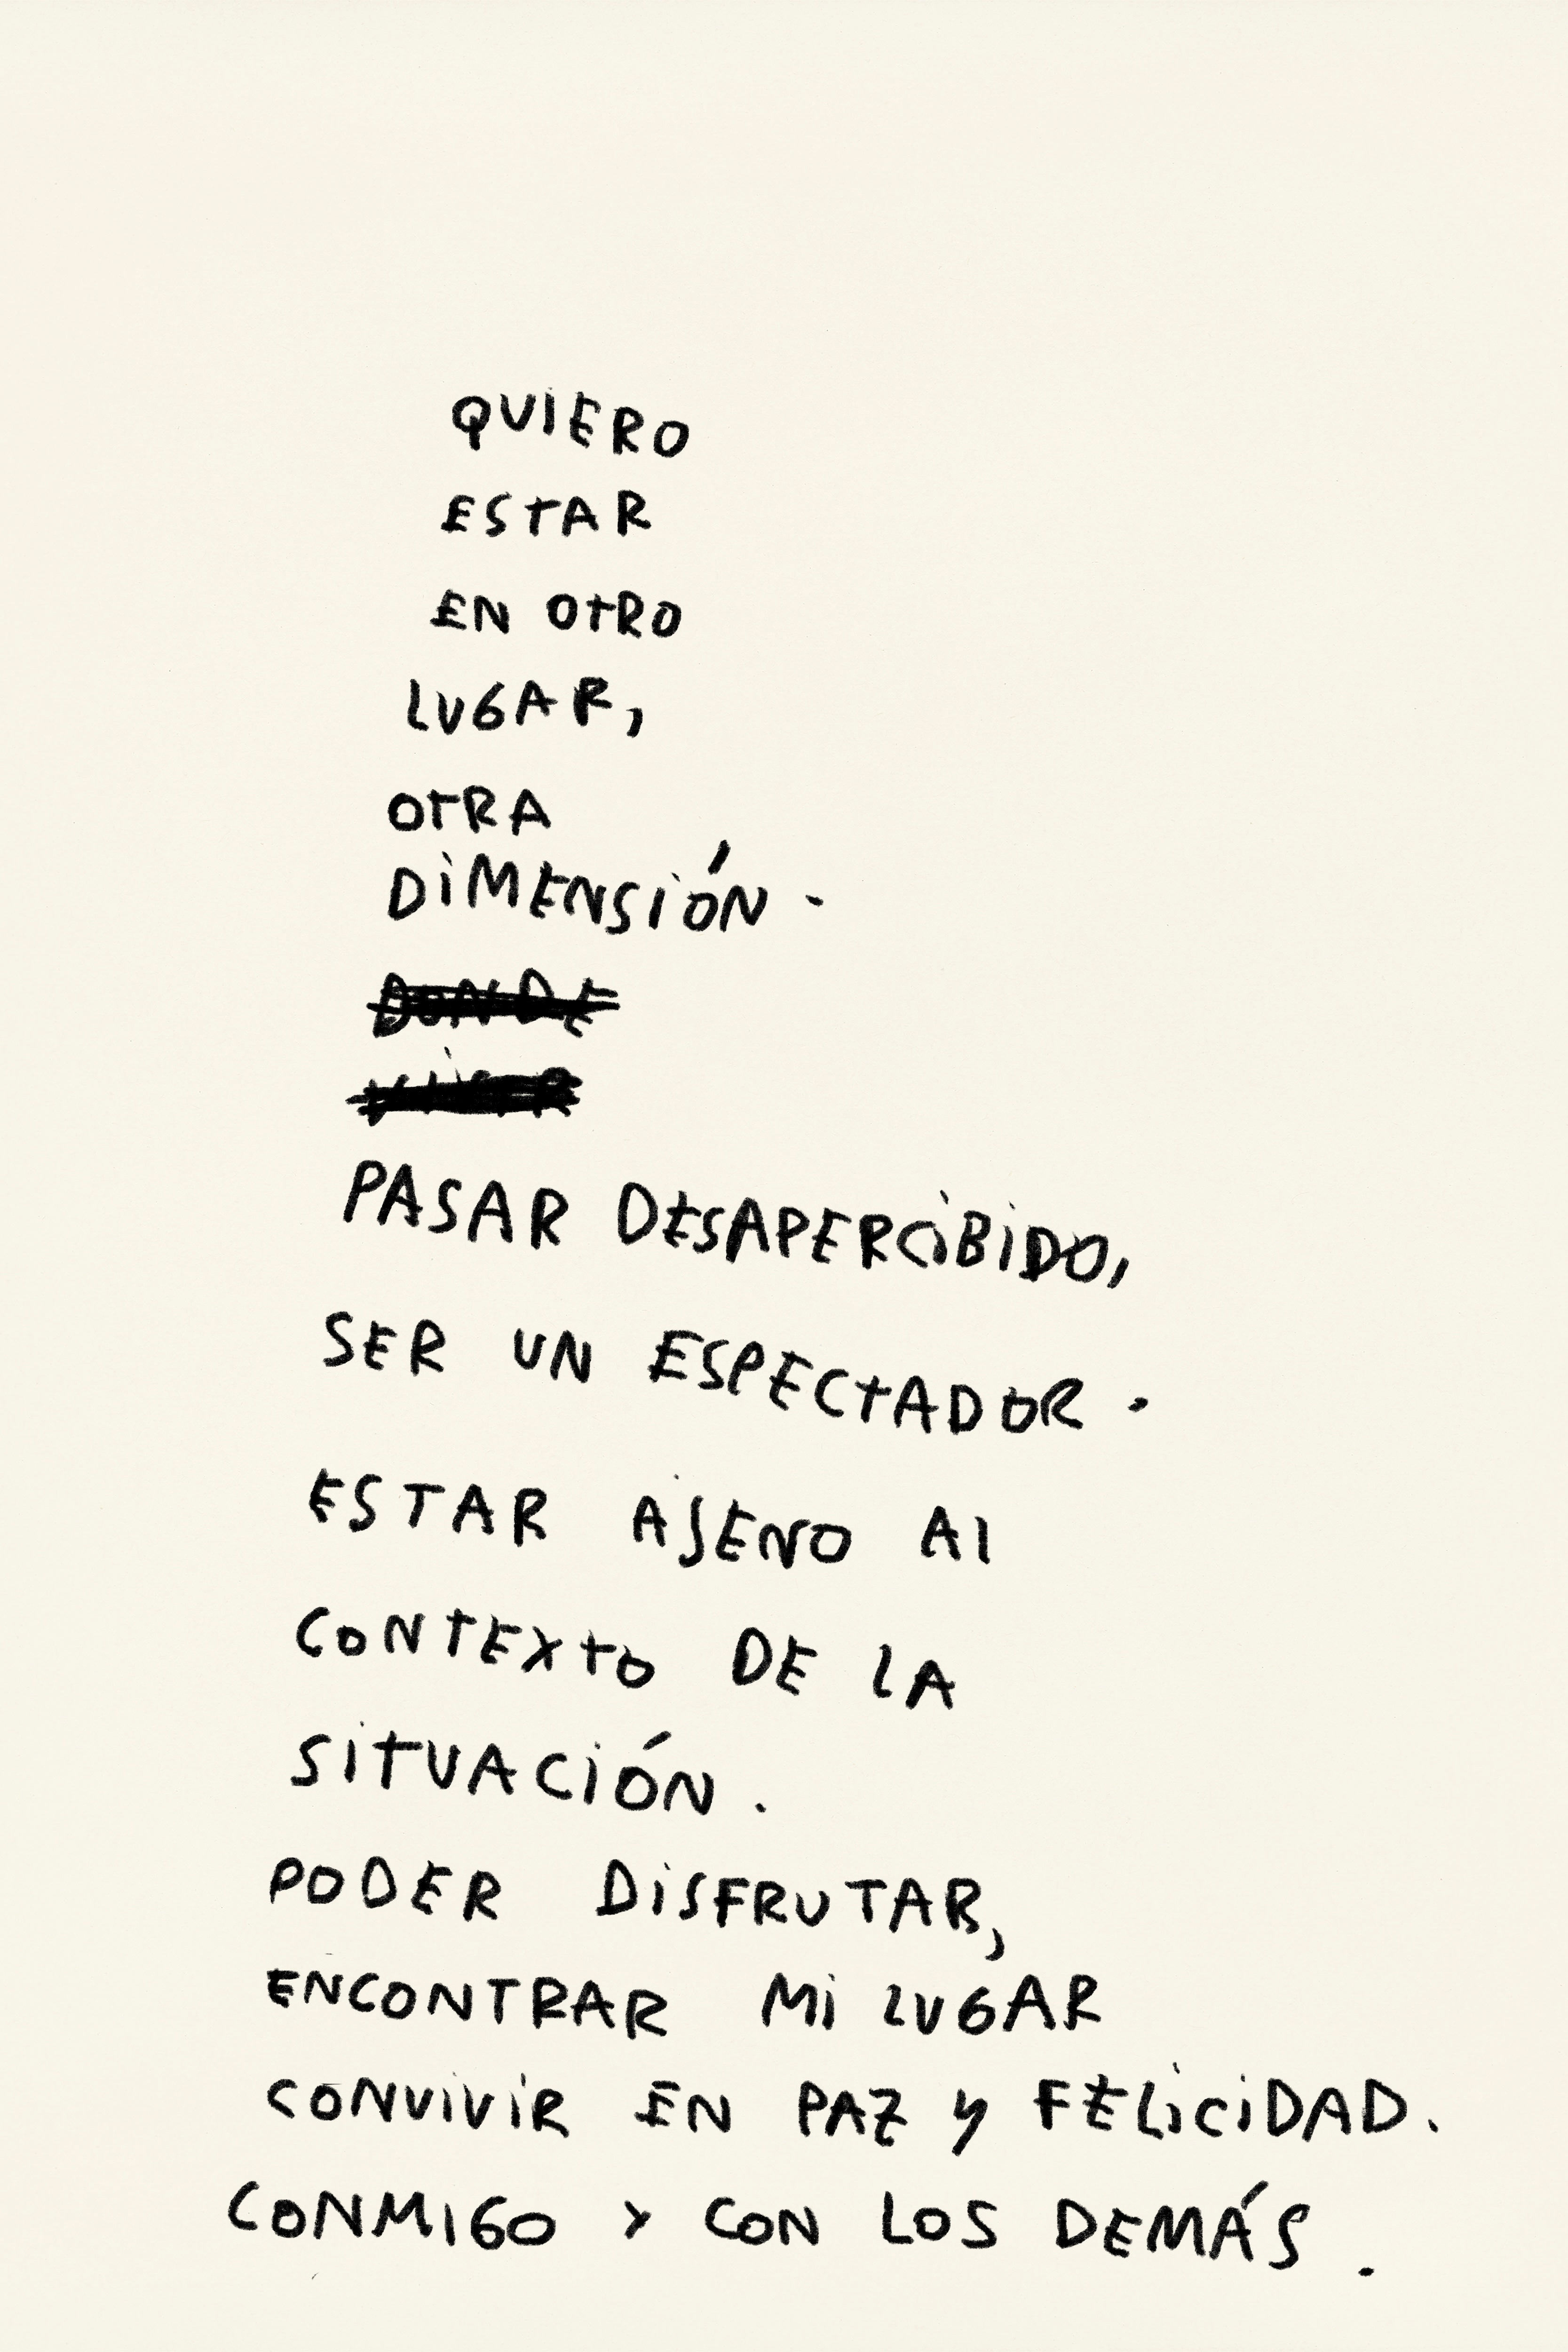 QUIERO
ESTAR
EN OTRO
LUGAR,
OTRA
DIMENSIÓN.
DONDE
PASAR DESAPERCIBIDO,
SER UN ESPECTADOR.
ESTAR AJENO Al
CONTEXTO DE LA
SITUACIÓN.
PODER DISFRUTAR,
ENCONTRAR MI LUGAR
CONVIVIR EN PAZ y FELICIDAD.
CONMIGO Y CON LOS DEMÁS.